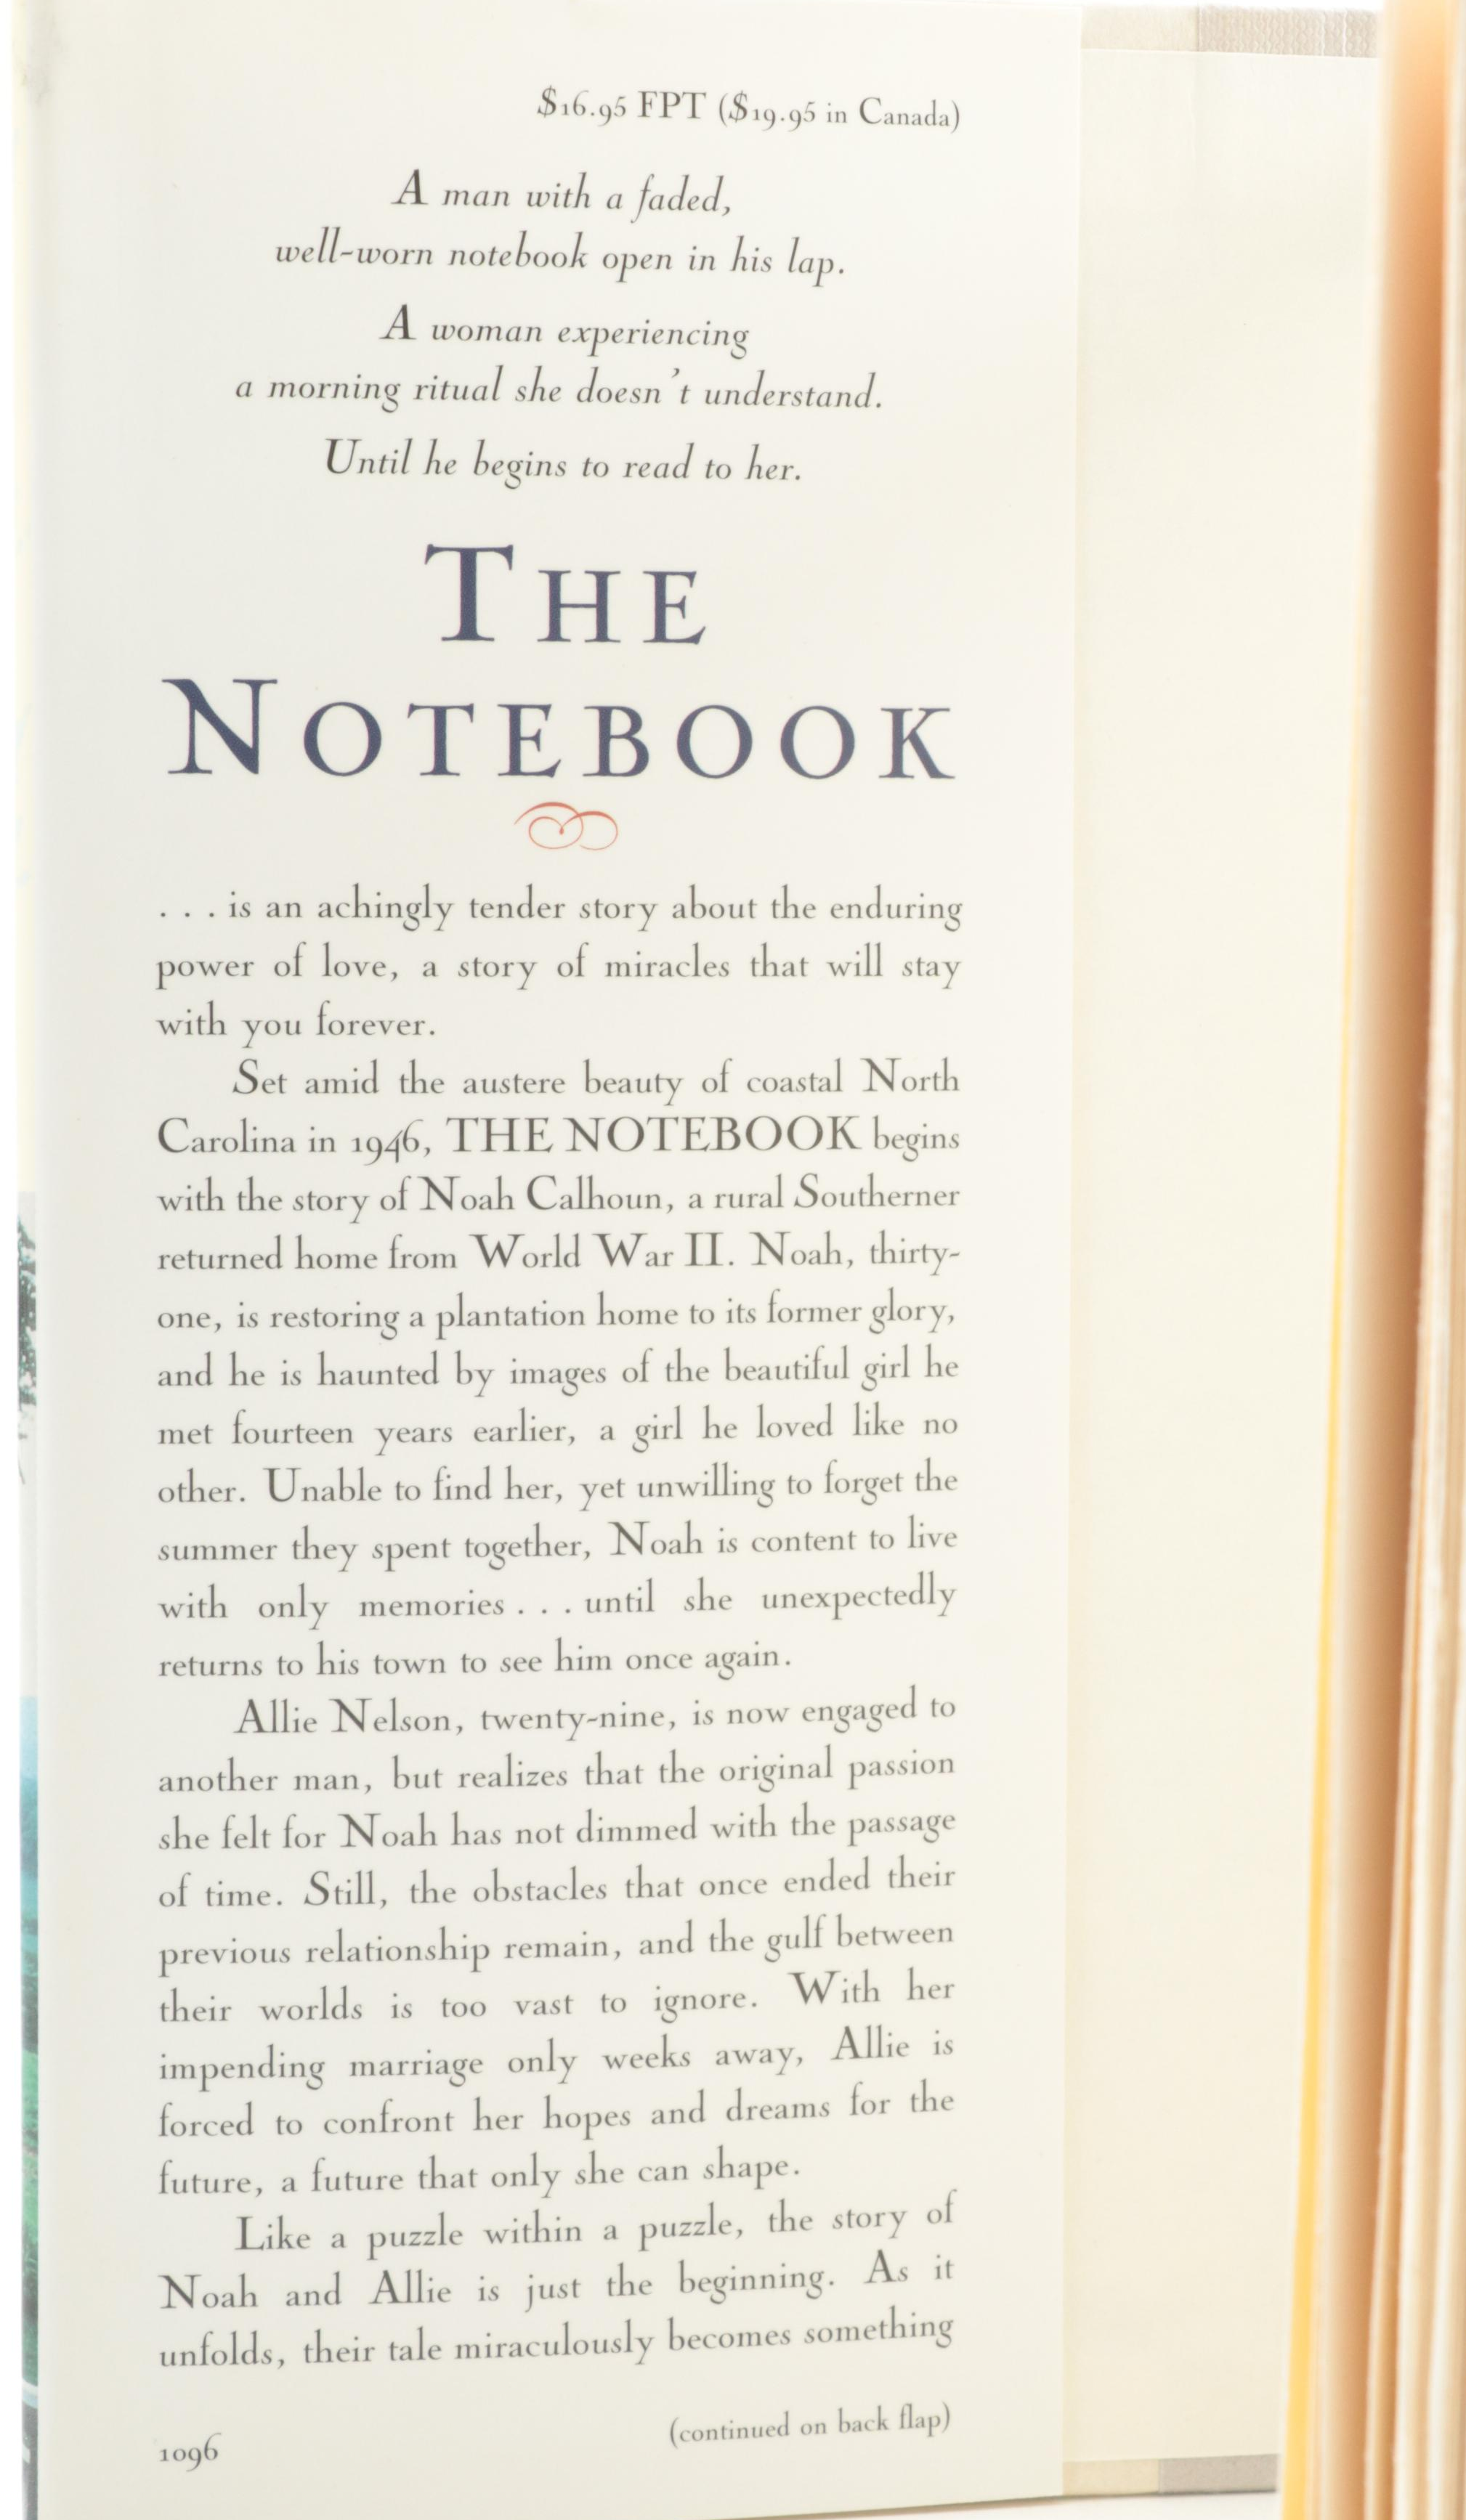 $16.95 FPT ($19.95 in Canada)
A man with a faded,
well-worn notebook open in his lap.
A woman experiencing
a morning ritual she doesn't understand.
Until he begins to read to her.
THE
NOTEBOOK
. . . is an achingly tender story about the enduring
power of love, a story of miracles that will stay
with you forever.
Set amid the austere beauty of coastal North
Carolina in 1946, THE NOTEBOOK begins
with the story of Noah Calhoun, a rural Southerner
returned home from World War II. Noah, thirty-
one, is restoring a plantation home to its former glory,
and he is haunted by images of the beautiful girl he
met fourteen years earlier, a girl he loved like no
other. Unable to find her, yet unwilling to forget the
summer they spent together, Noah is content to live
with only memories . . . until she unexpectedly
returns to his town to see him once again.
Allie Nelson, twenty-nine, is now engaged to
another man, but realizes that the original passion
she felt for Noah has not dimmed with the passage
of time. Still, the obstacles that once ended their
previous relationship remain, and the gulf between
their worlds is too vast to ignore. With her
impending marriage only weeks away, Allie is
forced to confront her hopes and dreams for the
future, a future that only she can shape.
Like a puzzle within a puzzle, the story of
Noah and Allie is just the beginning. As it
unfolds, their tale miraculously becomes something
(continued on back flap)
1096